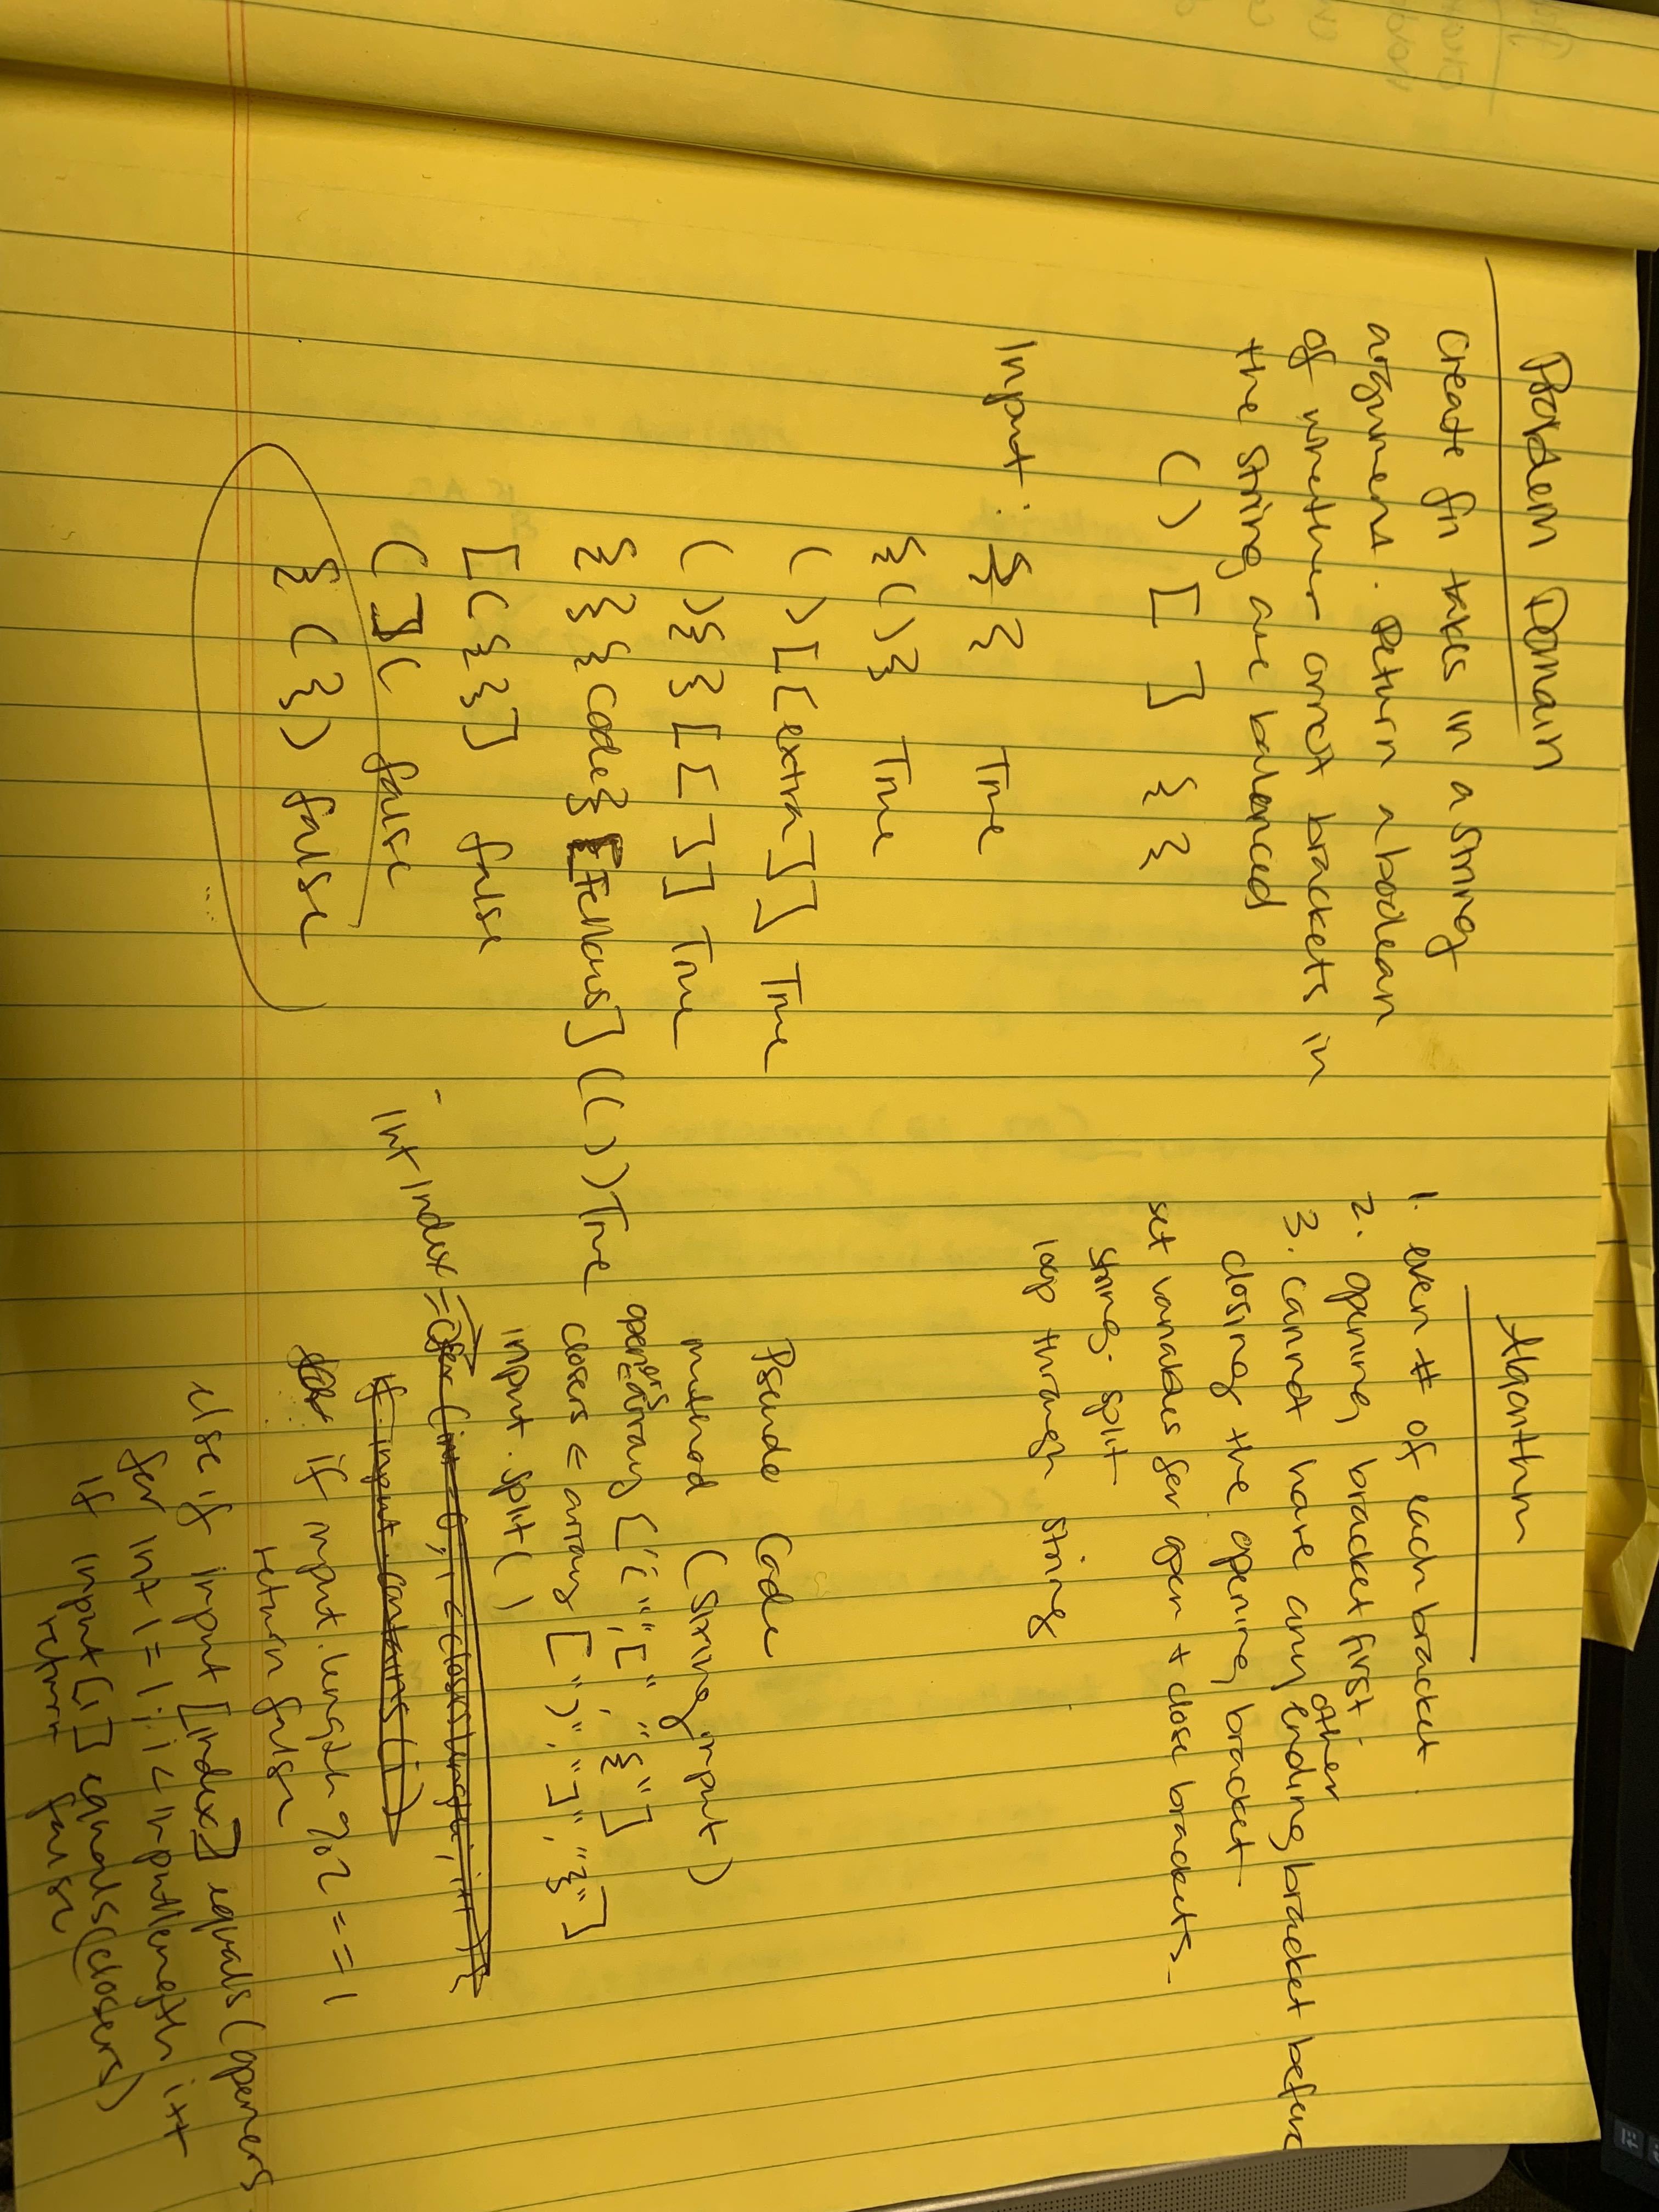 Problem Domain
create fn takes in a string
argument. Return a boolean
of whether or not brackets in
the string are balanced
( ) [ ] { }
Input: { } True
{ ( ) } True
( ) [ [ extra ] ] True
( ) { } [ [ ] ] True
{ } { code } [Fellows] ( ( ) ) True
[ ( { } ] false
( ] ( false
{ ( } ) false
Algorithm
1. even # of each bracket.
2. opening bracket first
3. cannot have any other ending bracket before
closing the opening bracket
set variables for open + close brackets.
string. split
loop through string
Pseudo Code
method (string input)
openers = array ["(", "[", "{"]
closers = array [")", "]", "}"]
input.split( )
int index = 0
for (int = 0; i < closers.length; i++) {
if input.contains(i)
if input.length % 2 == 1
return false
else if input [index] equals (openers
for int i = 1; i < input.length i++
if input [i] equals (closers)
return false